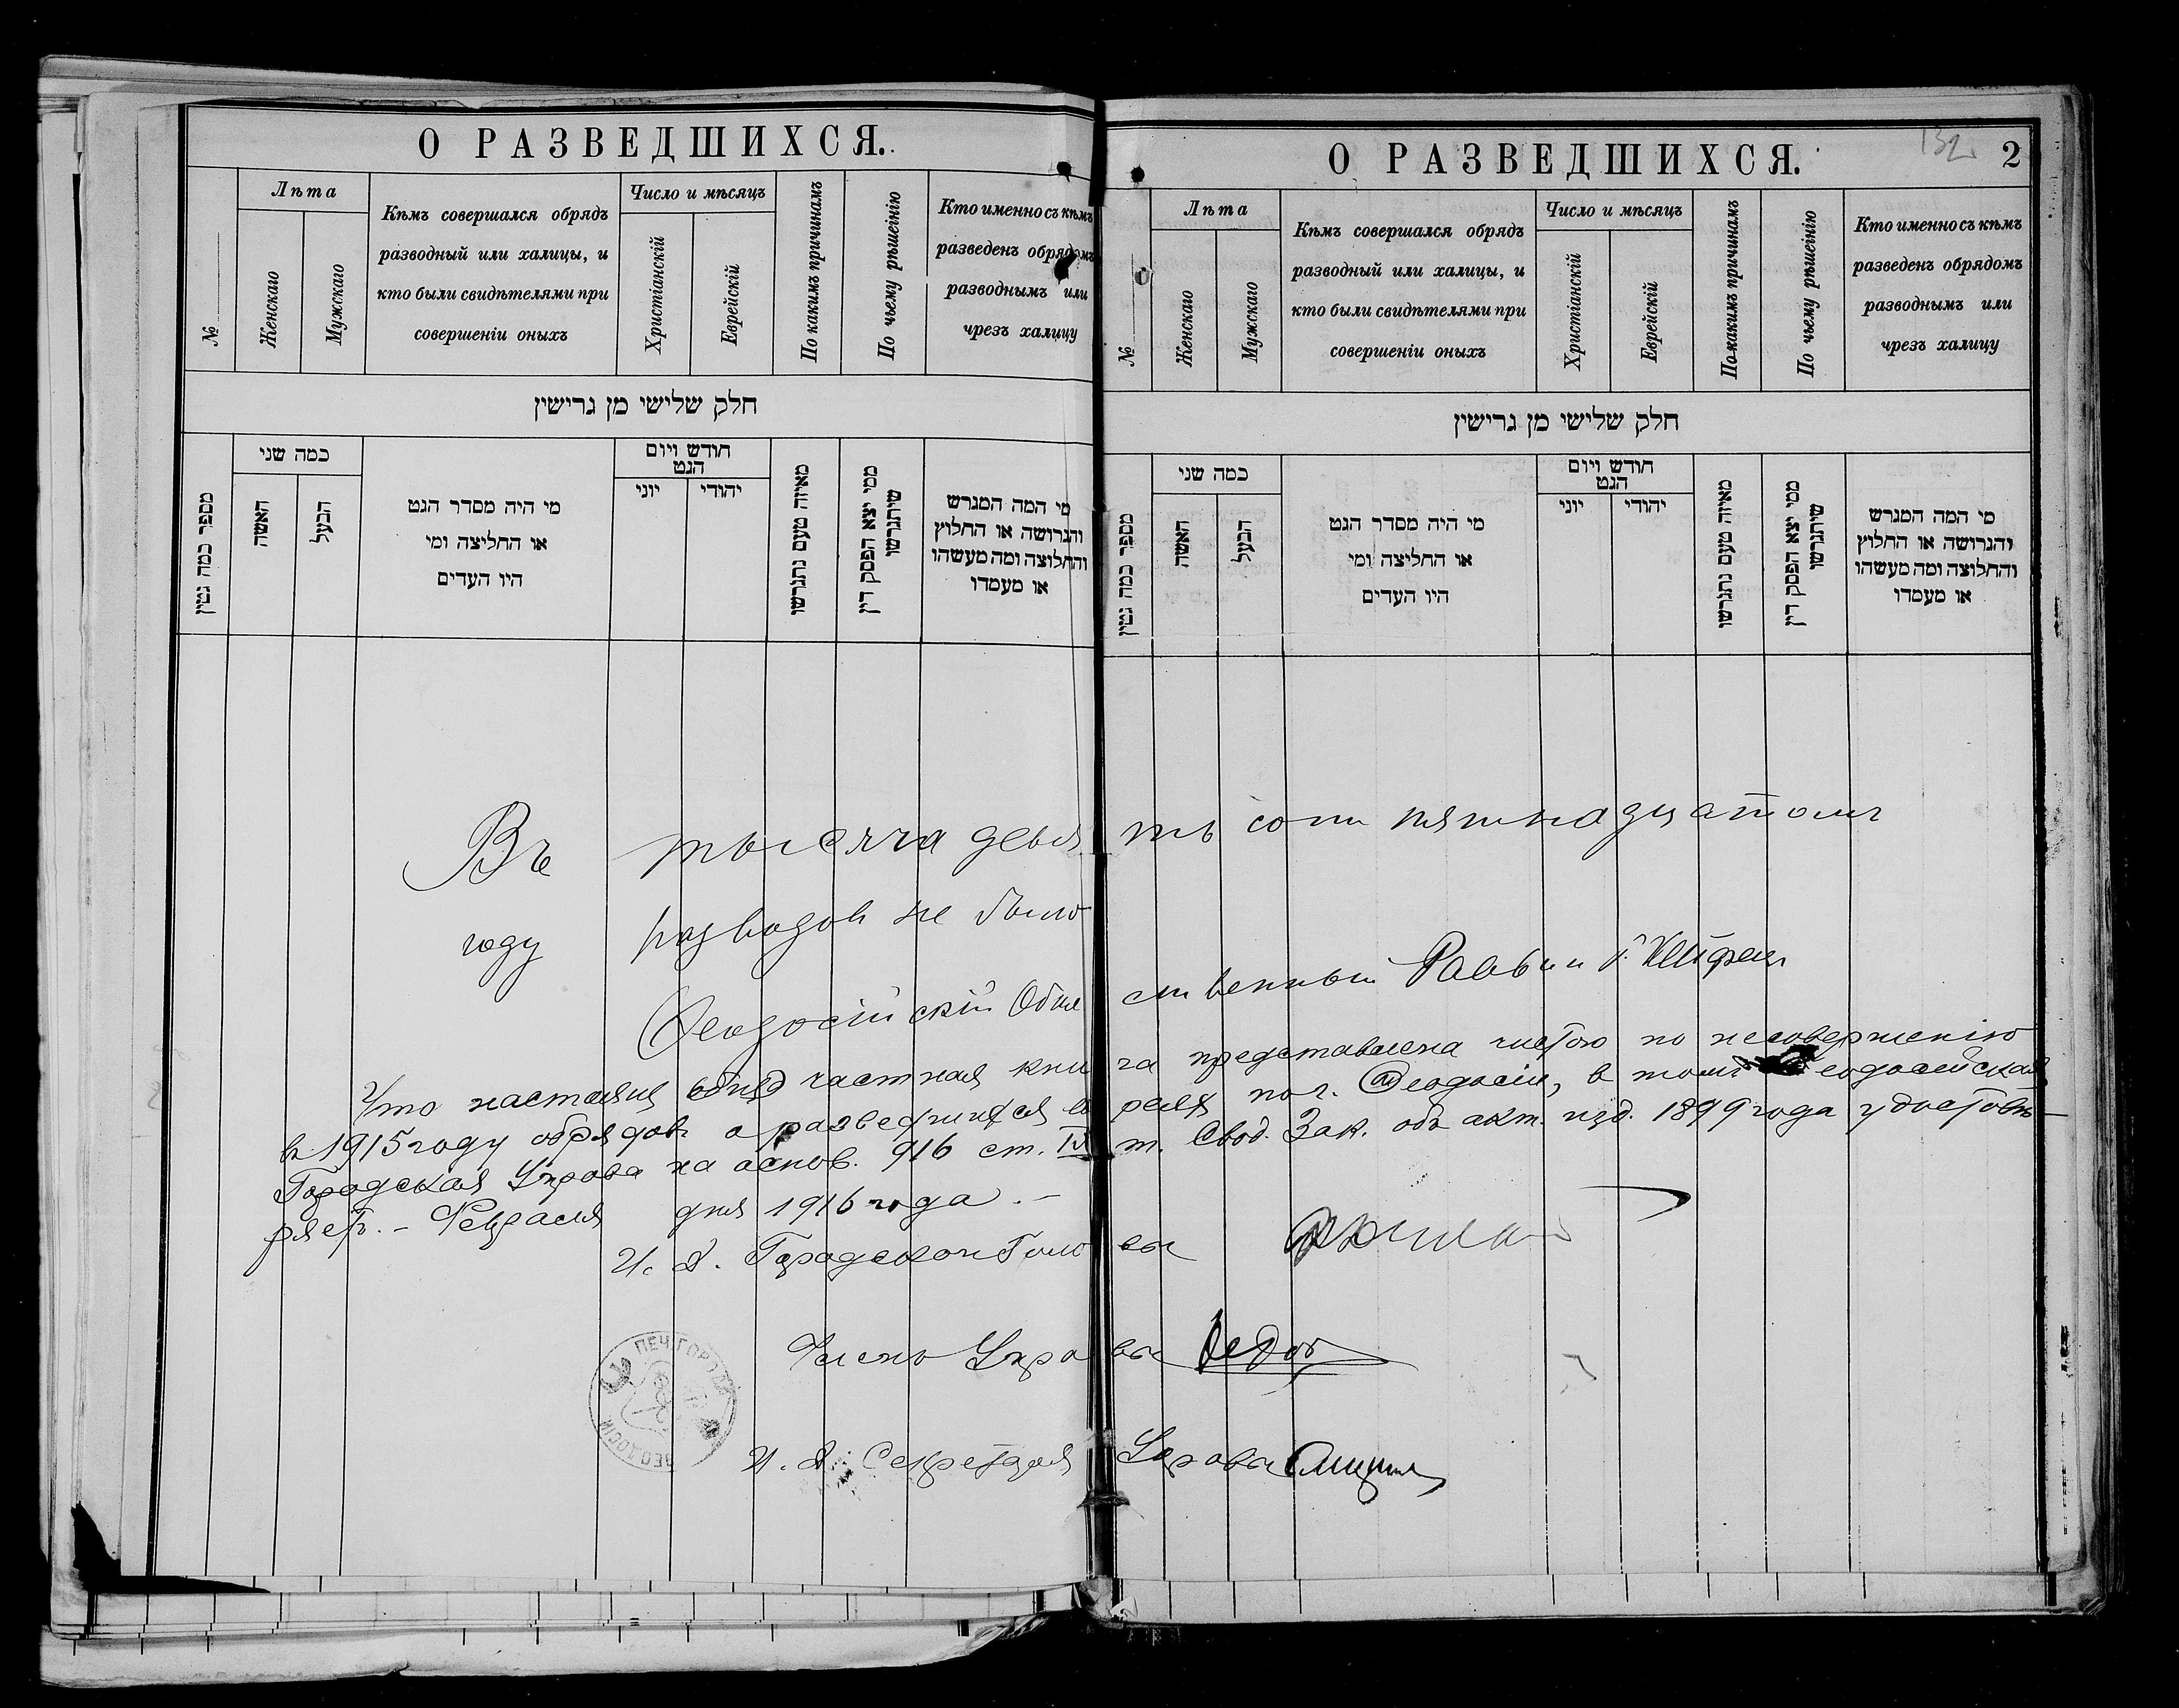 О РАЗВЕДШИХСЯ.
№
Лѣта
Женскаго
Мужскаго
Кѣмъ совершался обрядъ
разводный или халицы, и
кто были свидѣтелями при
совершеніи оныхъ
Число и мѣсяцъ
Христіанскій
Еврейскій
По какимъ причинамъ
По чьему рѣшеінію
Кто именно съ кѣмъ
разведенъ обрядомъ
разводнымъ или
чрезъ халицу
חלק שלישי מן גרישין
מספר כמה גטין
כמה שני
האשה
הבעל
מי היה מסדר הגט
או החליצה ומי
היו העדים
חודש ויום
הגט
יוני
יהודי
מאיזה טעם נתגרשו
ממי יצא הפסק דין
שיתגרשו
מי המה המגרש
והגרושה או החלוץ
והחלוצה ומה מעשהו
או מעמדו
О РАЗВЕДШИХСЯ.
132
2
№
Лѣта
Женскаго
Мужскаго
Кѣмъ совершался обрядъ
разводный или халицы, и
кто были свидѣтелями при
совершеніи оныхъ
Число и мѣсяцъ
Христіанскій
Еврейскій
По какимъ причинамъ
По чьему рѣшеінію
Кто именно съ кѣмъ
разведенъ обрядомъ
разводнымъ или
чрезъ халицу
חלק שלישי מן גרישין
מספר כמה גטין
כמה שני
האשה
הבעל
מי היה מסדר הגט
או החליצה ומי
היו העדים
חודש ויום
הגט
יוני
יהודי
מאיזה טעם נתגרשו
ממי יצא הפסק דין
שיתגרשו
מי המה המגרש
והגרושה או החלוץ
והחלוצה ומה מעשהו
או מעמדו
Въ тысяча девять сотъ пятнадцатомъ
году разводовъ не было
Ѳеодосійскій Общественный Раввин
Что настоящая частная книга представлена чистою по несовершенію
в 1915 году обрядовъ о разведшихся евреях по г. Ѳеодосіи, в томъ Ѳеодосійская
Городская Управа на основ. 916 ст. IX т. Свод. Зак. объ акт. изд. 1899 года удостовѣ-
ряетъ. - Февраля дня 1916 года. -
И. д. Городского Головы
Членъ Управы
И. д. Секретаря Управы
ПЕЧ. ГОРОДСК
ѲЕОДОСІЙ